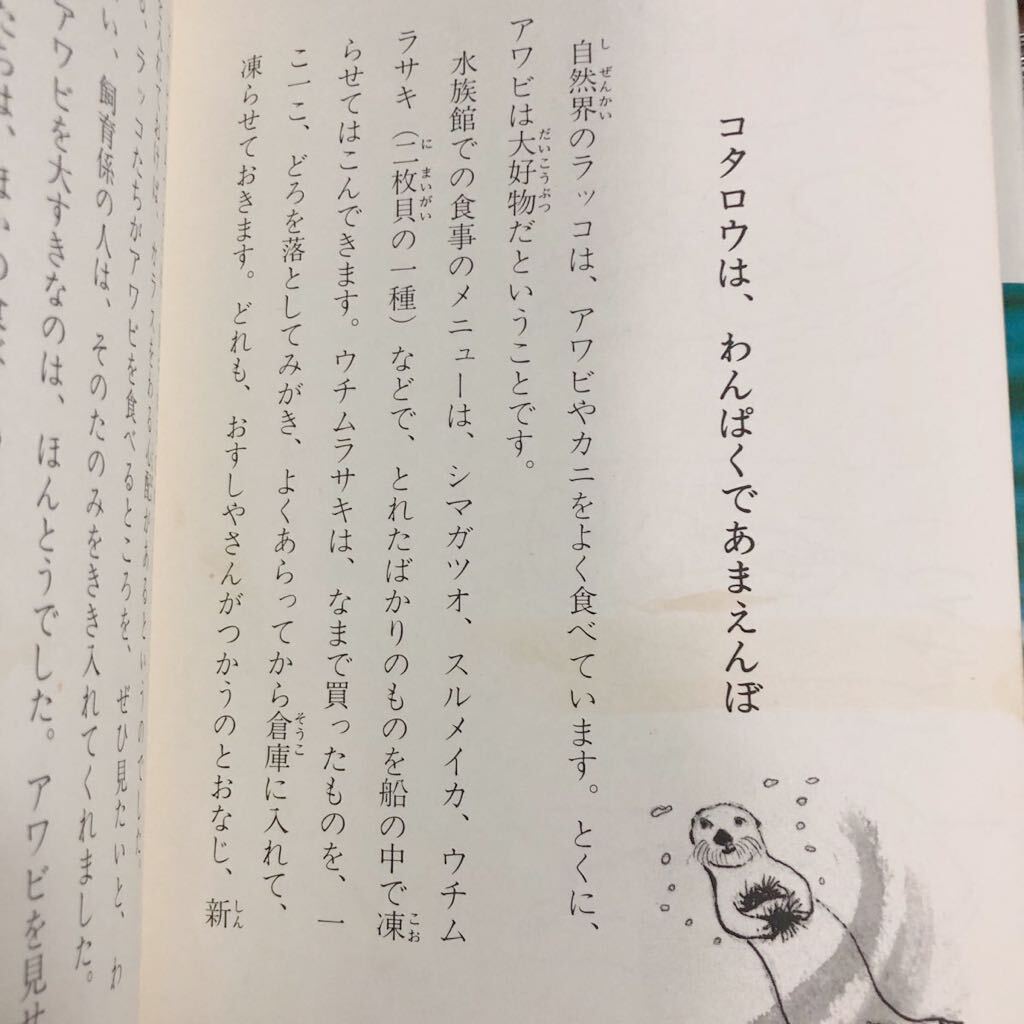 コタロウは、わんぱくであまえんぼ
自然界のラッコは、アワビやカニをよく食べています。とくに、
アワビは大好物だということです。
水族館での食事のメニューは、シマガツオ、スルメイカ、ウチム
ラサキ（二枚貝の一種）などで、とれたばかりのものを船の中で凍
らせてはこんできます。ウチムラサキは、なまで買ったものを、一
こ一こ、どろを落としてみがき、よくあらってから倉庫に入れて、
凍らせておきます。どれも、おすしやさんがつかうのとおなじ、新
ラッコたちがアワビを食べるところを、ぜひ見たいと、わ
い、飼育係の人は、そのたのみをきき入れてくれました。
アワビを大すきなのは、ほんとうでした。アワビを見せ